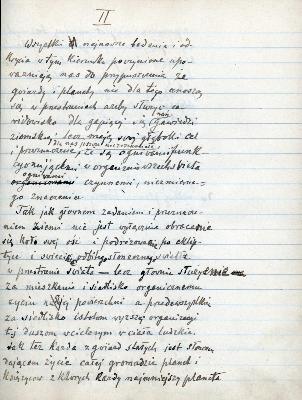 II
Wszystkie najnowsze badania i od-
krycia w tym kierunku poczynione upo-
ważniają nas do przypuszczenia że
gwiazdy i planety nie dla tego unoszą
się w przestworzach azeby służyć za
widowisko dla gapiącej się gawiedzi
ziemskiej lecz mają swój głęboki cel
dla nas jeszcze
i przeznaczenie, że są ogniwami funk
cyonującymi w organizmie wszechświata
ogniwami
czynnemi, niezmierne-
go znaczenia
Jak jak głównem zadaniem i przeznacze-
niem ziemi nie jest wyłącznie obracanie
się koło swej osi i podróżowanie po eklip-
tyce i świecić odbitym słonecznym światłem
w przestrzeni świata – lecz głównie służyć
za mieszkanie i siedlisko organicznemu
życiu na jej powierzchni a przedewszystkiem
za siedlisko istotom wyższej organizacyi
tej duszom wcielonym w ciała ludzkie.
Tak też każda z gwiazd stałych jest słońcem
dającem życie całej gromadzie planet i
księżyców z których każdy najmniejszy planeta